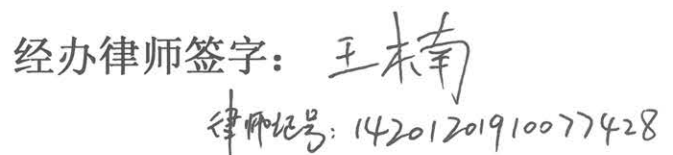 经办律师签字：王楠
律师证号：14201201910077428